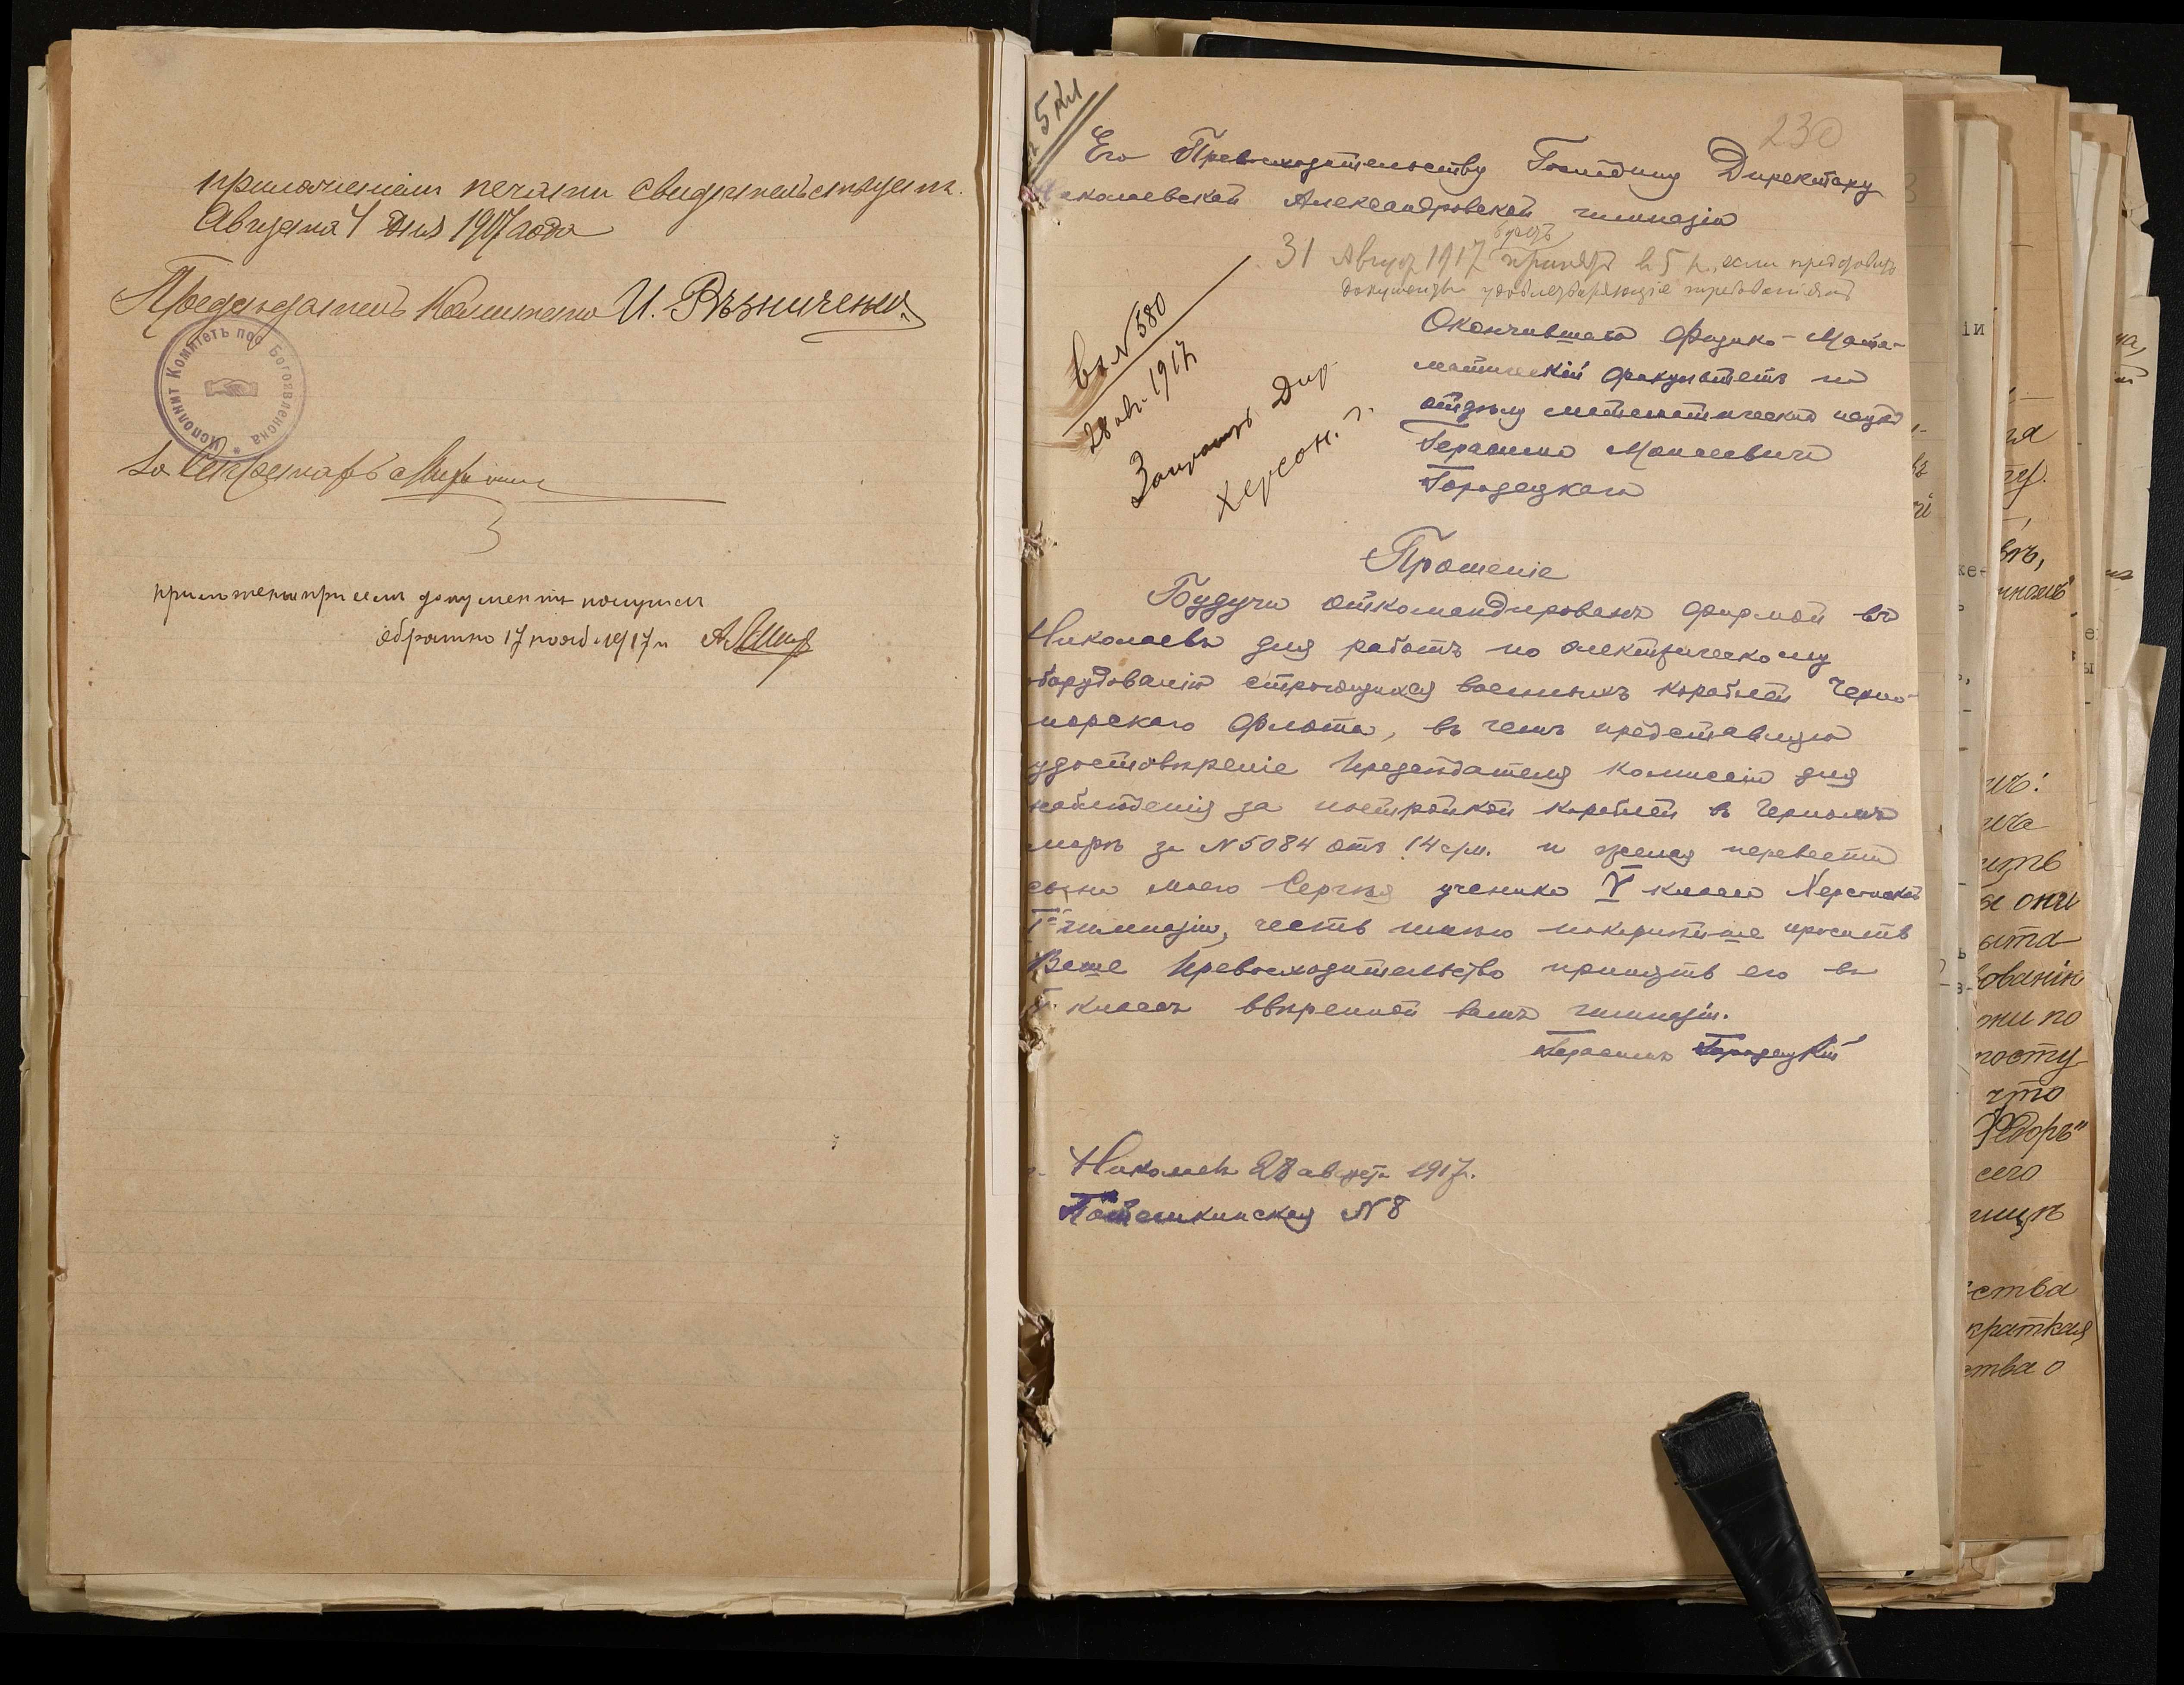 приложеніем печати свидѣтельствуетъ.
Августа 4 дня 1917 года
Предсѣдатель Комитета И. Рѣзниченко
Исполнит Комитетъ пос Богоявленска
за Секретарь
приложенные при семъ документы получилъ
обратно 17 нояб 1917 г
5 кл
230
Его Превосходительству Господину Директору
Николаевской Александровской гимназіи
будетъ
31 Август 1917 принятъ в 5 к., если представитъ
документы удовлетворяющіе требованіямъ
Вх. N 580
28 авг. 1917
Запросить Дир.
Херсон. г.
Окончившаго Физико-Мате-
матическій факультетъ по
отдѣлу математическихъ наукъ
Герасима Моисеевича
Городецкаго
Прошеніе
Будучи откомандированъ фирмой въ
Николаевъ для работъ по электрическому
оборудованію строющихся военныхъ кораблей Черно-
морскаго флота, въ чемъ представляю
удостовѣреніе Предсѣдателя Комиссіи для
наблюденія за постройкой кораблей въ Черномъ
морѣ за N 5084 отъ 14 с/м. и желая перевести
сына моего Сергѣя ученика V класса Херсонской
Iй гимназіи, честь имѣю покорнѣйше просить
Ваше Превосходительство принять его въ
V классъ ввѣренной вамъ гимназіи.
Герасимъ Городецкій
г. Николаевъ 28 августа 1917 г.
Потемкинская N 8